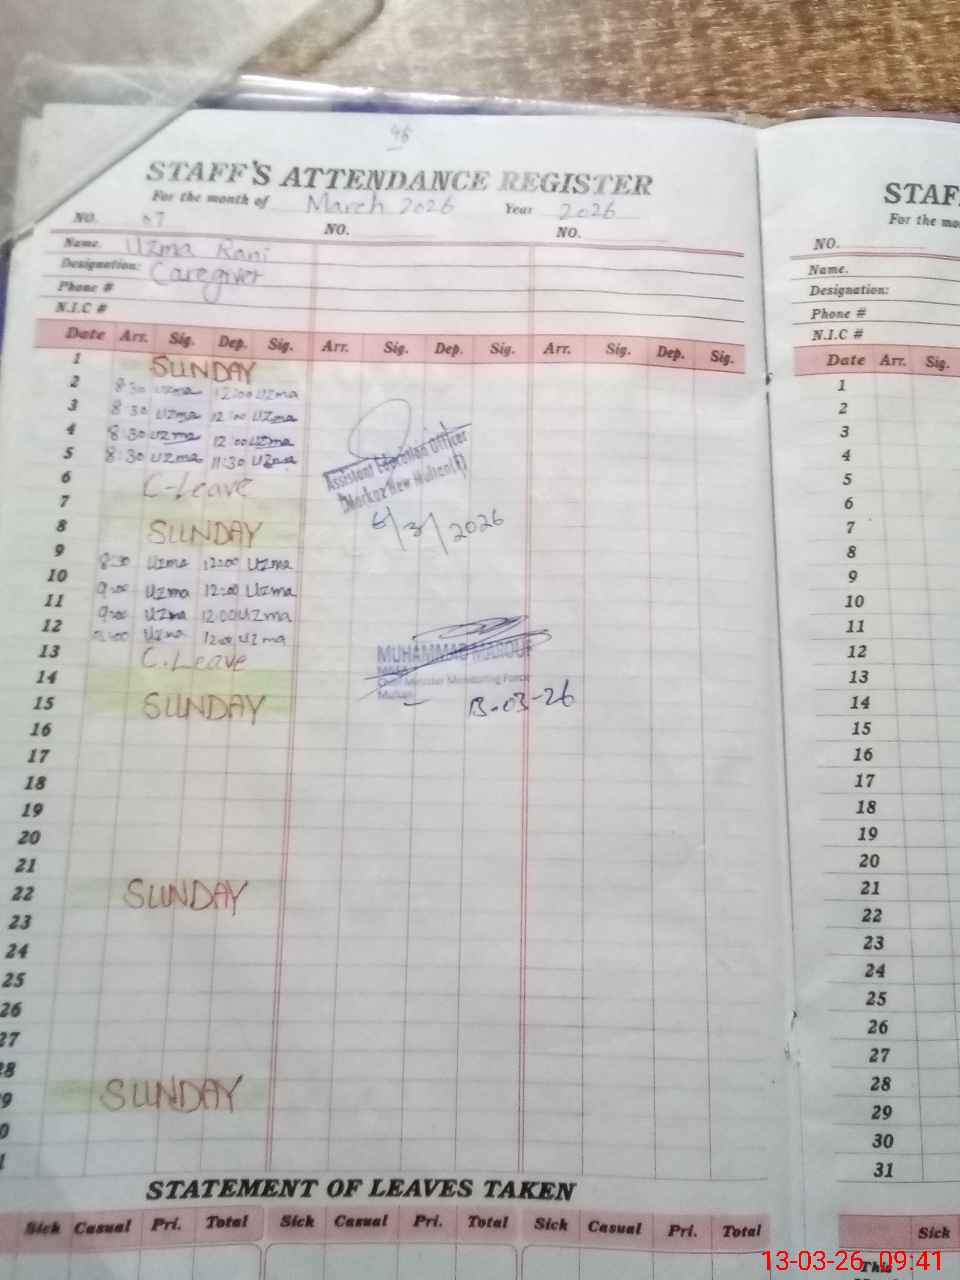 46
STAFF'S ATTENDANCE REGISTER
For the month of March 2026 Year 2026
NO. 07 NO. NO.
Name. Uzma Rani
Designation: Caregiver
Phone #
N.I.C #
Date Arr. Sig. Dep. Sig. Arr. Sig. Dep. Sig. Arr. Sig. Dep. Sig.
1 SUNDAY
2 8:30 Uzma 12:00 Uzma
3 8:30 Uzma 12:00 Uzma
4 8:30 Uzma 12:00 Uzma
5 8:30 Uzma 11:30 Uzma
6 C-Leave
7
8 SUNDAY
9 8:30 Uzma 12:00 Uzma
10 9:00 Uzma 12:00 Uzma
11 9:00 Uzma 12:00 Uzma
12 Uzma 12:00 Uzma
13 C.Leave
14
15 SUNDAY
16
17
18
19
20
21
22 SUNDAY
23
24
25
26
27
8
9 SUNDAY
0
1
Assistant Education Officer
Markaz New Multan (F)
6/3/2026
MUHAMMAD MAROUF
Chief Minister Monitoring Force
Multan
13-03-26
STATEMENT OF LEAVES TAKEN
Sick Casual Pri. Total Sick Casual Pri. Total Sick Casual Pri. Total
STAF
For the mo
NO.
Name.
Designation:
Phone #
N.I.C #
Date Arr. Sig.
1
2
3
4
5
6
7
8
9
10
11
12
13
14
15
16
17
18
19
20
21
22
23
24
25
26
27
28
29
30
31
Sick
This
13-03-26 09:41